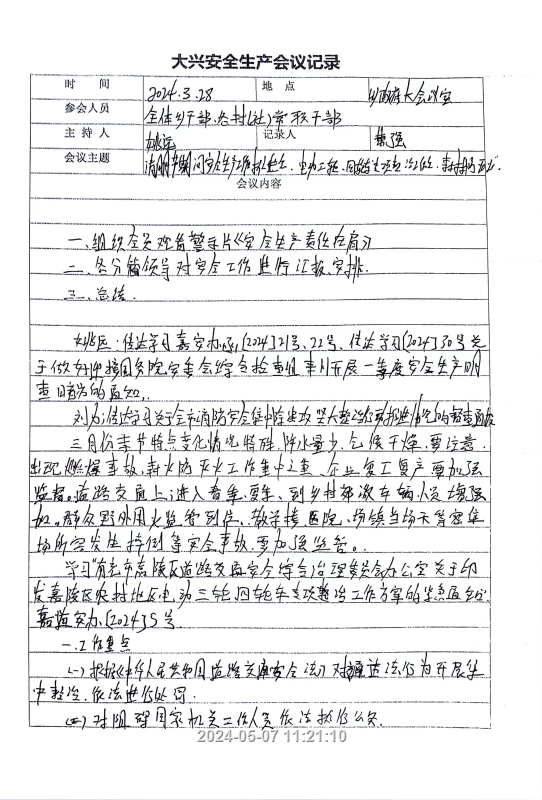 大兴安全生产会议记录
时 间 2024.3.28 地 点 乡政府大会议室
参会人员 全体乡干部、各村(社)常职干部
主 持 人 记录人 强
会议主题 清明节期间安全生产工作
会议内容
一、组织全员观看警示片《安全生产责任在肩》
二、各分管领导对安全工作进行汇报、安排.
三、总结.
传达学习嘉安办[2024]21号、22号、传达学习[2024]30号关
于做好迎接国务院安委会综合检查组来川开展一季度安全生产明
查暗访的通知.
传达学习关于全市消防安全集中除患攻坚大整治
三月份季节特点变化情况特殊,降水量少、气候干燥,要注意.
出现燃爆事故,森林防灭火工作重中之重,企业复工复产要加强
监督.道路交通上,进入春季、夏季,到乡村郊游车辆、人员增强
加。群众野外用火监管到位、教学楼、医院、场镇当场天等密集
场所突发生摔倒等安全事故,要加强监管。
学习"南充市嘉陵区道路交通安全综合治理委员会办公室关于印
发嘉陵区农村地区电动三轮四轮车专项整治工作方案的紧急通知"
嘉道安办[2024]5号
一.工作重点
(一)根据《中华人民共和国道路交通安全法》对违法行为开展集
中整治、依法进行处罚.
(二)对阻碍国家机关工作人员依法执行公务.
2024-05-07 11:21:10